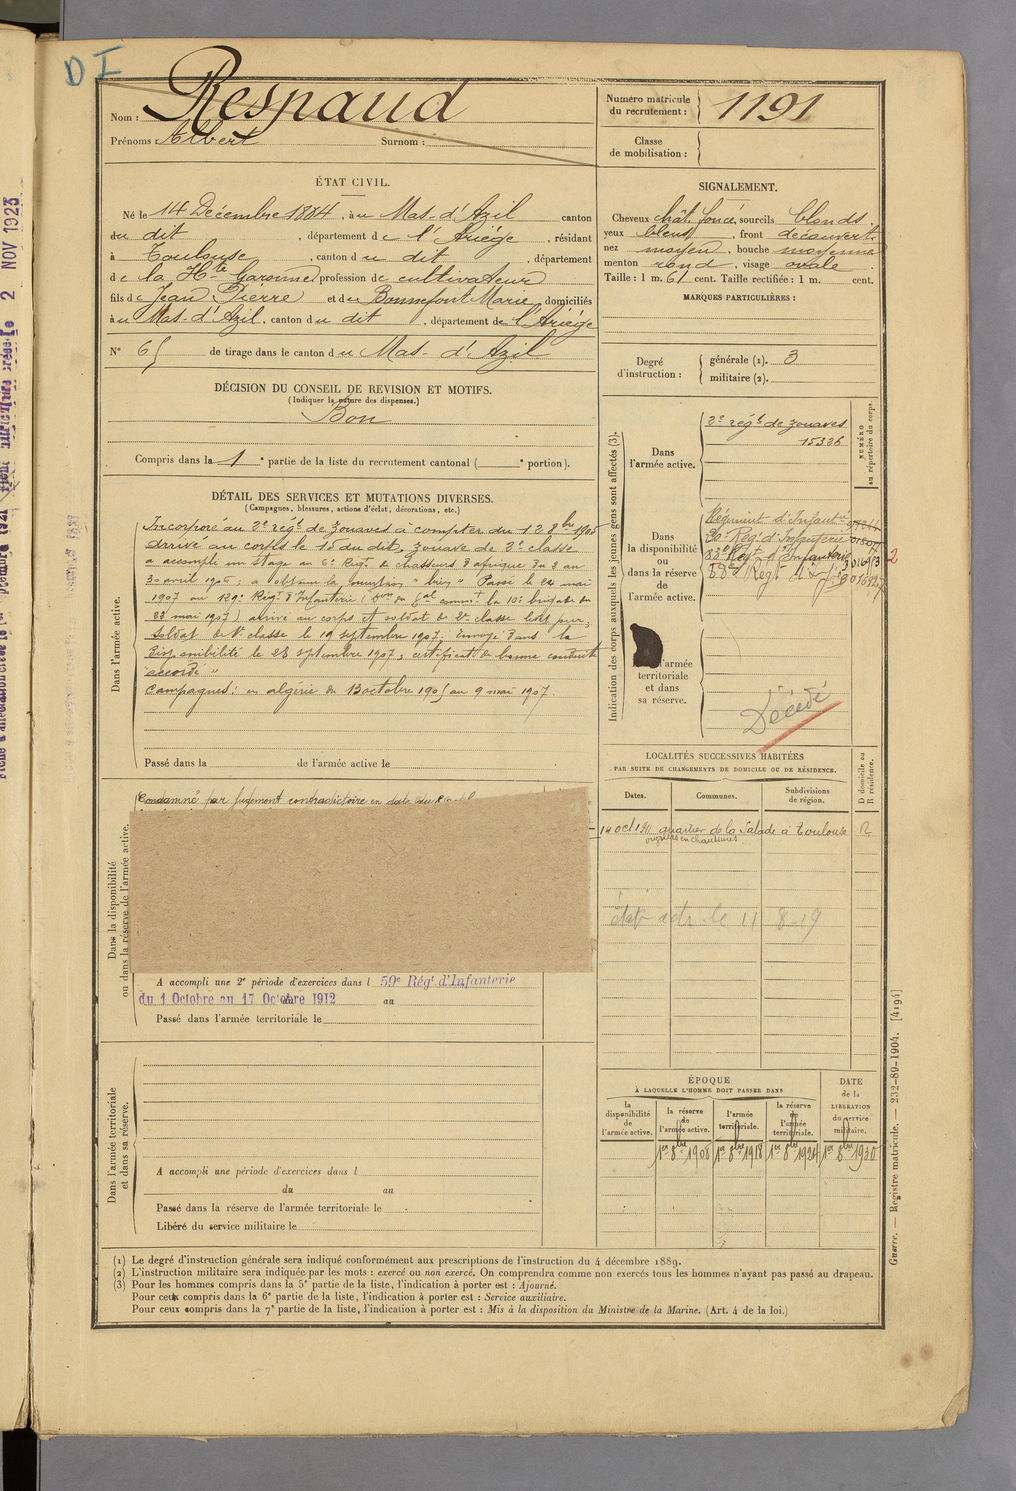 D I
Nom : Respaud
Prénoms : Albert Surnom :
Numéro matricule du recrutement : 1191
Classe de mobilisation :
ÉTAT CIVIL.
Né le 14 Décembre 1884, à u Mas-d'Azil canton
du dit, département de l'Ariège, résidant
à Toulouse, canton du dit, département
de la Hte Garonne profession de cultivateur
fils de Jean Pierre et de Bonnefont Marie, domiciliés
à u Mas-d'Azil, canton du dit, département de l'Ariège
N° 65 de tirage dans le canton du Mas-d'Azil
DÉCISION DU CONSEIL DE REVISION ET MOTIFS.
(Indiquer la nature des dispenses.)
Bon
Compris dans la 1e partie de la liste du recrutement cantonal ( e portion).
SIGNALEMENT.
Cheveux chât. foncé, sourcils blonds
yeux bleus, front découvert
nez moyen, bouche moyenne
menton rond, visage ovale
Taille : 1 m. 61 cent. Taille rectifiée : 1 m. cent.
MARQUES PARTICULIÈRES :
Degré d'instruction : générale (1). 3
militaire (2).
DÉTAIL DES SERVICES ET MUTATIONS DIVERSES.
(Campagnes, blessures, actions d'éclat, décorations, etc.)
Dans l'armée active.
Incorporé au 2e régt de zouaves à compter du 12 8bre 1905
arrivé au corps le 15 du dit, zouave de 2e classe
a accompli un stage au 6e Régt de chasseurs d'afrique du 3 au
30 avril 1906; a obtenu la mention "bien" Passé le 24 mai
1907 au 129e Régt d'Infanterie
23 mai 1907) arrivé au corps et soldat de 2e classe led. jour,
Soldat de 1e classe le 19 septembre 1907; Envoyé dans la
disponibilité le 28 septembre 1907; certificat de bonne conduite
"accordé"
Campagnes : en algérie du 13 octobre 1905 au 9 mai 1907.
Passé dans la de l'armée active le
Indication des corps auxquels les jeunes gens sont affectés (3).
NUMÉRO au répertoire du corps.
Dans l'armée active.
2e régt de zouaves
15336
Dans la disponibilité ou dans la réserve de l'armée active.
Régiment d'Infantie
Rég. d'Infanterie
Régt d'Infanterie
2
l'armée territoriale et dans sa réserve.
Décédé
LOCALITÉS SUCCESSIVES HABITÉES
PAR SUITE DE CHANGEMENTS DE DOMICILE OU DE RÉSIDENCE.
Dates. Communes. Subdivisions de région. D domicile ou R résidence.
14 oct 1911 quartier de la Salade à Toulouse R
ouvriers en chaussures
11 8-19
Dans la disponibilité ou dans la réserve de l'armée active.
Condamné par jugement contradictoire en date du
A accompli une 2e période d'exercices dans l 59e Régt d'Infanterie
du 1 Octobre au 17 Octobre 1912 au
Passé dans l'armée territoriale le
Dans l'armée territoriale et dans sa réserve.
A accompli une période d'exercices dans l
du au
Passé dans la réserve de l'armée territoriale le
Libéré du service militaire le
ÉPOQUE
À LAQUELLE L'HOMME DOIT PASSER DANS
DATE de la LIBÉRATION du service militaire.
la disponibilité de l'armée active.
la réserve de l'armée active.
l'armée territoriale.
la réserve de l'armée territoriale.
1er 8bre 1908 1er 8bre 1918 1er 8bre 1924 1er 8bre 1930
Guerre. — Registre matricule. — 232-89-1904. [4194]
(1) Le degré d'instruction générale sera indiqué conformément aux prescriptions de l'instruction du 4 décembre 1889.
(2) L'instruction militaire sera indiquée par les mots : exercé ou non exercé. On comprendra comme non exercés tous les hommes n'ayant pas passé au drapeau.
(3) Pour les hommes compris dans la 5e partie de la liste, l'indication à porter est : Ajourné.
Pour ceux compris dans la 6e partie de la liste, l'indication à porter est : Service auxiliaire.
Pour ceux compris dans la 7e partie de la liste, l'indication à porter est : Mis à la disposition du Ministre de la Marine. (Art. 4 de la loi.)
2 NOV 1923